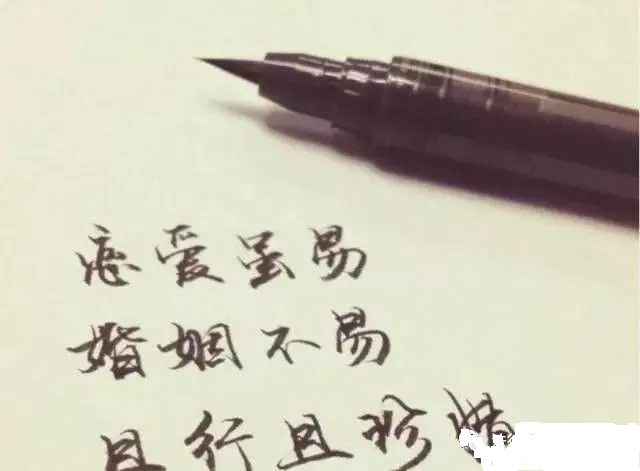 恋爱虽易
婚姻不易
且行且珍惜